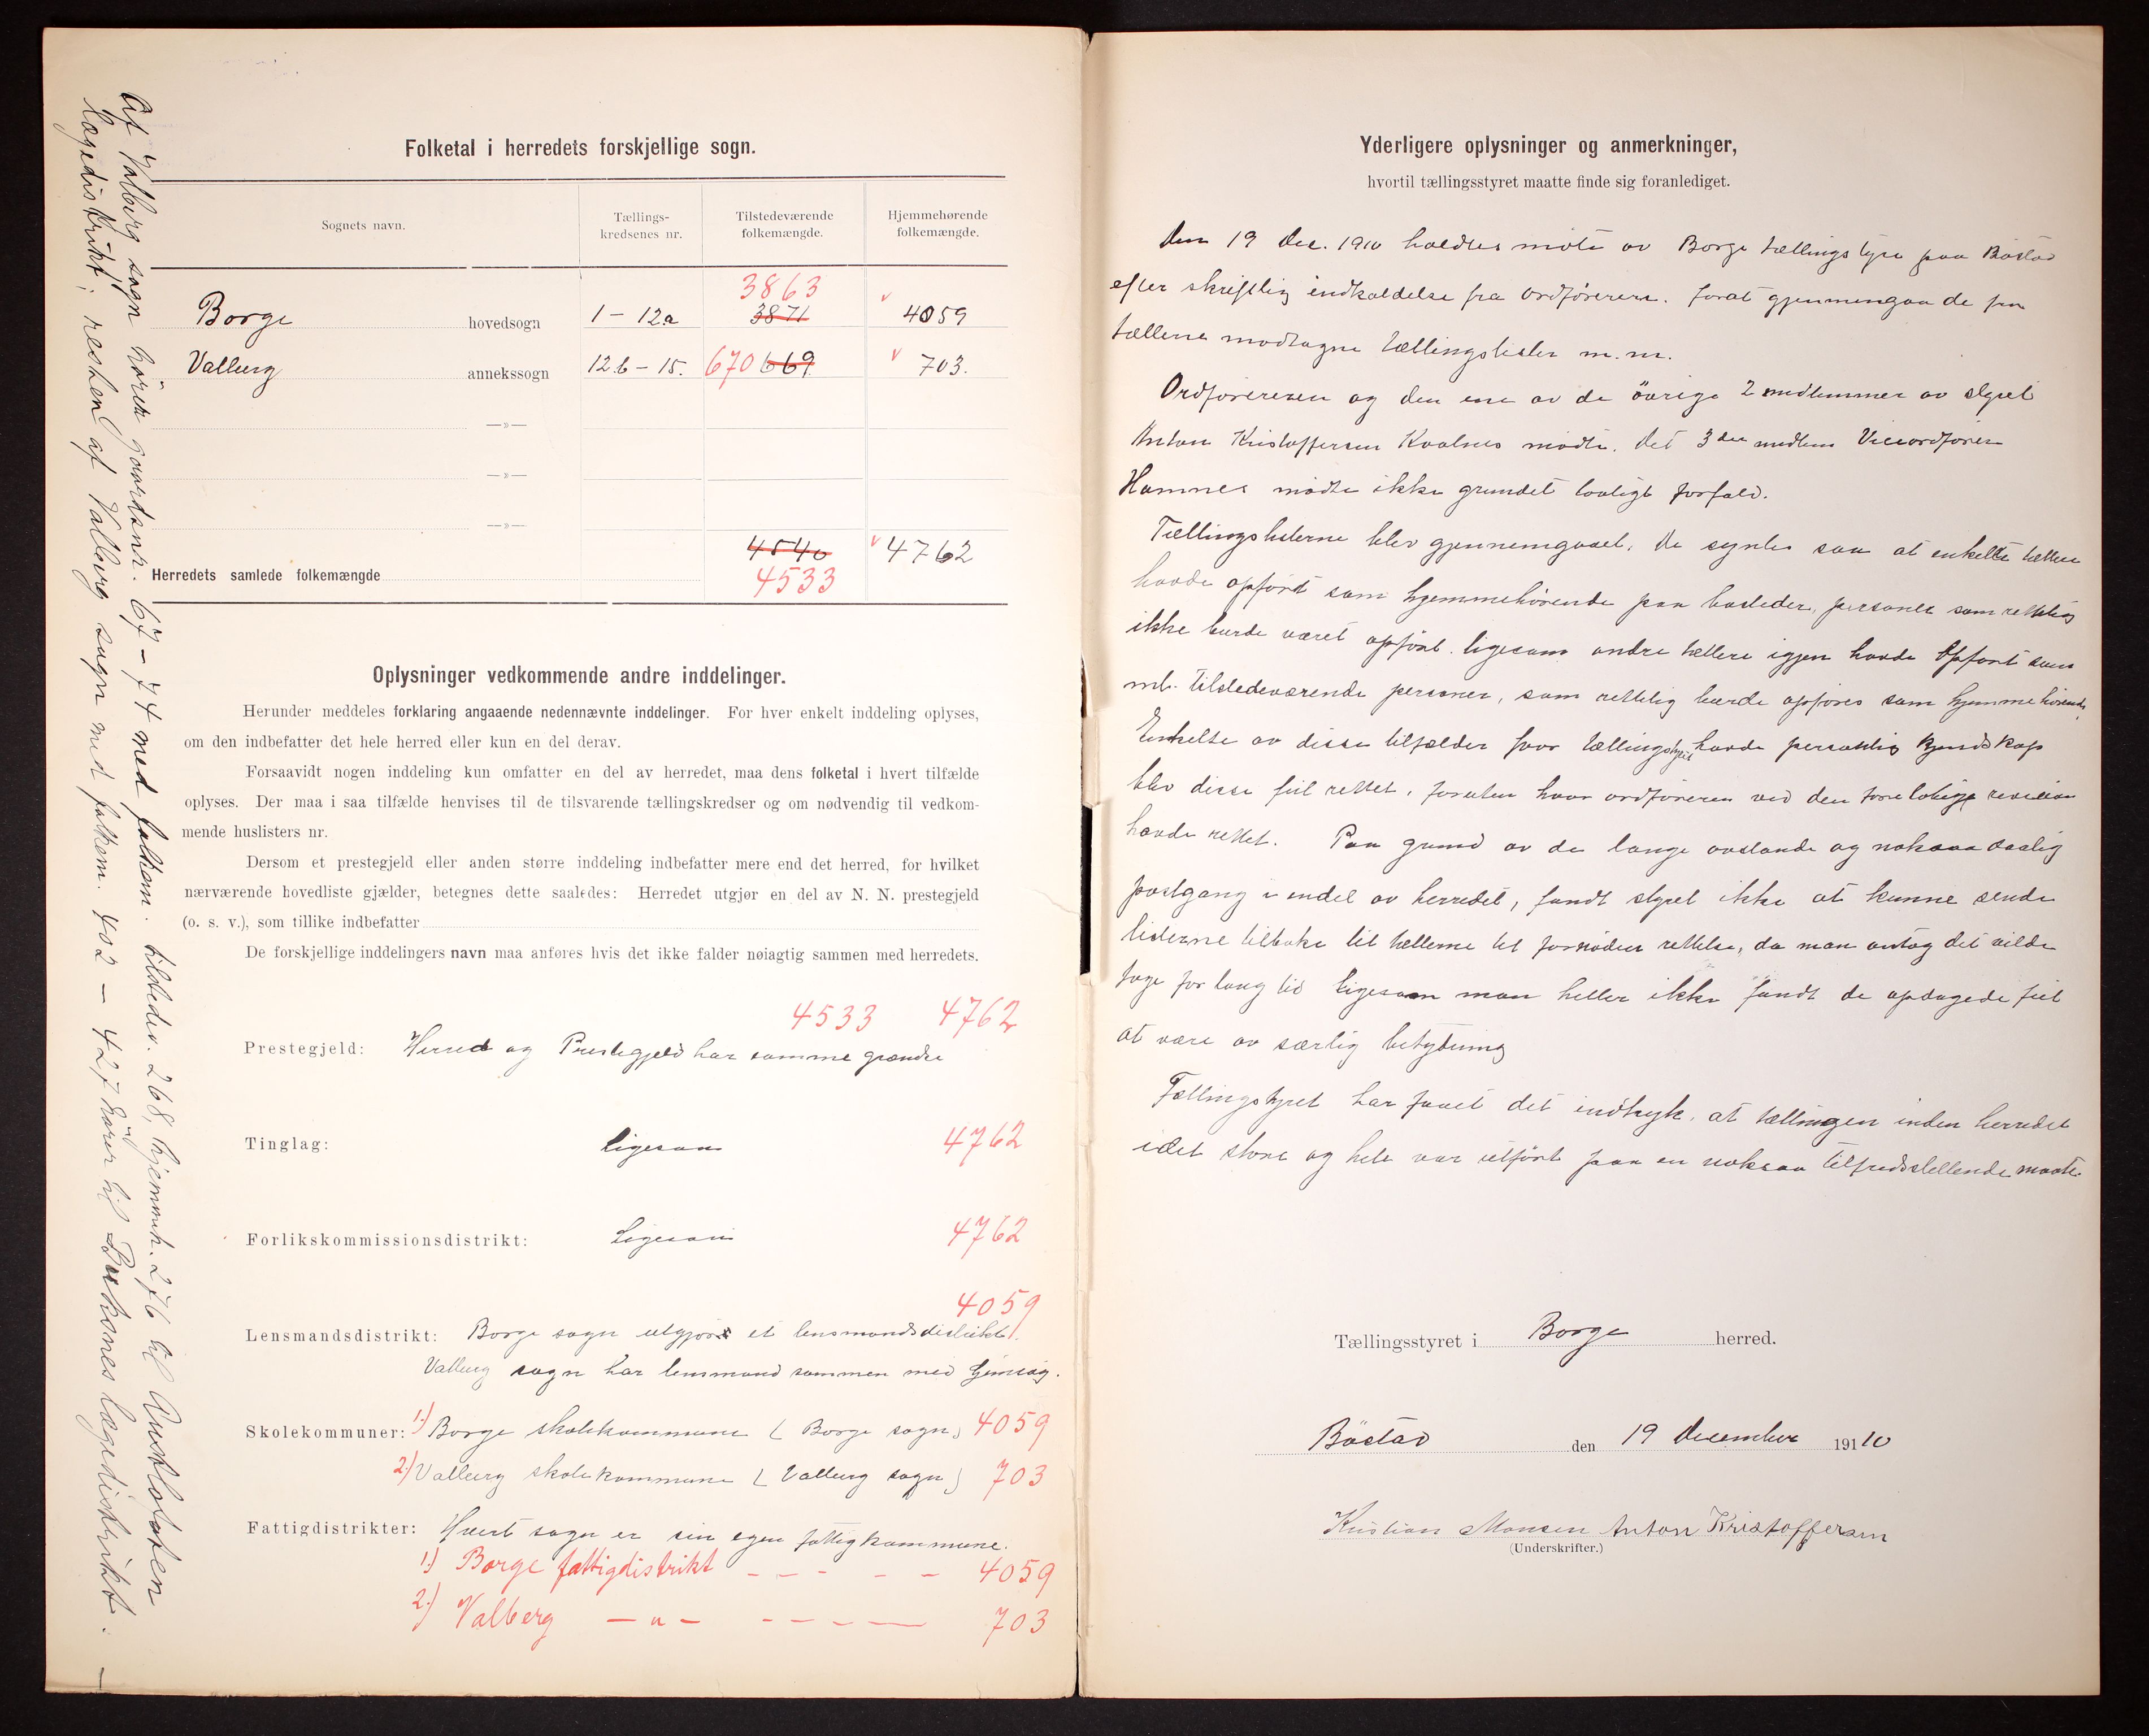 Folketal i herredets forskjellige sogn.
Sognets navn.
Tællings-
kredsenes nr.
Tilstedeværende
folkemængde.
Hjemmehørende
folkemængde.
3863
Borge hovedsogn 1 - 12a 3871 4059
Valberg annekssogn 12.b - 15. 670 669 703.
—»—
—»—
—»—
4540 4762
Herredets samlede folkemængde 4533
Oplysninger vedkommende andre inddelinger.
Herunder meddeles forklaring angaaende nedennævnte inddelinger. For hver enkelt inddeling oplyses,
om den indbefatter det hele herred eller kun en del derav.
Forsaavidt nogen inddeling kun omfatter en del av herredet, maa dens folketal i hvert tilfælde
oplyses. Der maa i saa tilfælde henvises til de tilsvarende tællingskredser og om nødvendig til vedkom-
mende huslisters nr.
Dersom et prestegjeld eller anden større inddeling indbefatter mere end det herred, for hvilket
nærværende hovedliste gjælder, betegnes dette saaledes: Herredet utgjør en del av N. N. prestegjeld
(o. s. v.), som tillike indbefatter
De forskjellige inddelingers navn maa anføres hvis det ikke falder nøiagtig sammen med herredets.
4533 4762
Prestegjeld: Herred og Prestegjeld har samme grændse
Tinglag: Ligesaa 4762
Forlikskommissionsdistrikt: Ligesaa 4762
4059
Lensmandsdistrikt: Borge sogn utgjør et lensmandsdistrikt.
Valberg sogn har lensmand sammen med Gimsøy.
Skolekommuner: 1.) Borge skolekommune (Borge sogn) 4059
2.) Valberg skolekommune (Valberg sogn) 703
Fattigdistrikter: Hvert sogn er sin egen fattigkommune.
1.) Borge fattigdistrikt - - - - - 4059
2.) Valberg — „ — - - - - — 703
Af Valberg sogn hører gaardsnr. 67 - 74 med folkem. tilstedev. 268, hjemmeh. 276 til Austlofoten
lægedistrikt; resten af Valberg sogn med folkem. 402 - 427 hører til Buksnes lægedistrikt.
Yderligere oplysninger og anmerkninger,
hvortil tællingsstyret maatte finde sig foranlediget.
Den 19 Dec. 1910 holdtes møte av Borge tællingstyre paa Bøstad
efter skriftlig indkaldelse fra ordføreren. forat gjennemgaa de fra
tællerne modtagne tællingslister m. m.
Ordføreren og den ene av de øvrige 2 medlemmer av styret
Anton Kristoffersen Kvalnes mødte. Det 3die medlem Viceordfører
Hamnes mødte ikke grundet lovligt forfald.
Tællingslisterne blev gjennemgaaet. De syntes saa at enkelte tællere
havde opført som hjemmehørende paa bosteder, personer som rettelig
ikke burde været opført. ligesom andre tællere igjen havde opført som
mb. tilstedeværende personer, som rettelig burde opføres som hjemmehørende.
Enkelte av disse tilfælder hvor tællingstyret havde personlig kjendskap
blev disse feil rettet, foruten hvad ordføreren ved den foreløbige revision
havde rettet. Paa grund av de lange avstande og noksaa daarlig
postgang i endel av herredet, fandt styret ikke at kunne sende
listerne tilbake til tællerne til fornøden rettelse, da man antog det vilde
tage for lang tid ligesom man heller ikke fandt de opdagede feil
at være av særlig betydning
Tællingstyret har faaet det indtryk, at tællingen inden herredet
idet store og hele var utført paa en noksaa tilfredsstellende maate.
Tællingsstyret i Borge herred.
Bøstad den 19 December 1910
Kristian Monsen Anton Kristoffersen
(Underskrifter.)